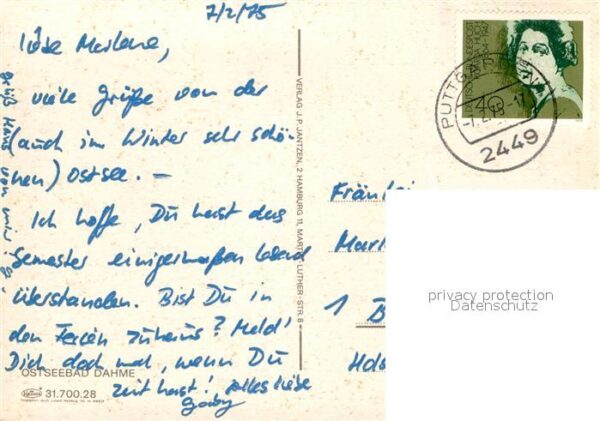 7/2/75
Liebe Marlene,
viele Grüße von der
(auch im Winter sehr schö-
nen) Ostsee. –
Ich hoffe, Du hast das
Semester einigermaßen lebend
überstanden. Bist Du in
den Ferien zuhaus? Meld'
Dich doch mal, wenn Du
Zeit hast! Alles Liebe
Gaby
grüß Hans von mir
OSTSEEBAD DAHME
31.700.28
VERLAG J. P. JANTZEN, 2 HAMBURG 11, MARTIN-LUTHER-STR. 8
DEUTSCHE BUNDESPOST
40
PUTTGARDEN
-7.2.75-17
2449
Fräulein
1 B
privacy protection
Datenschutz